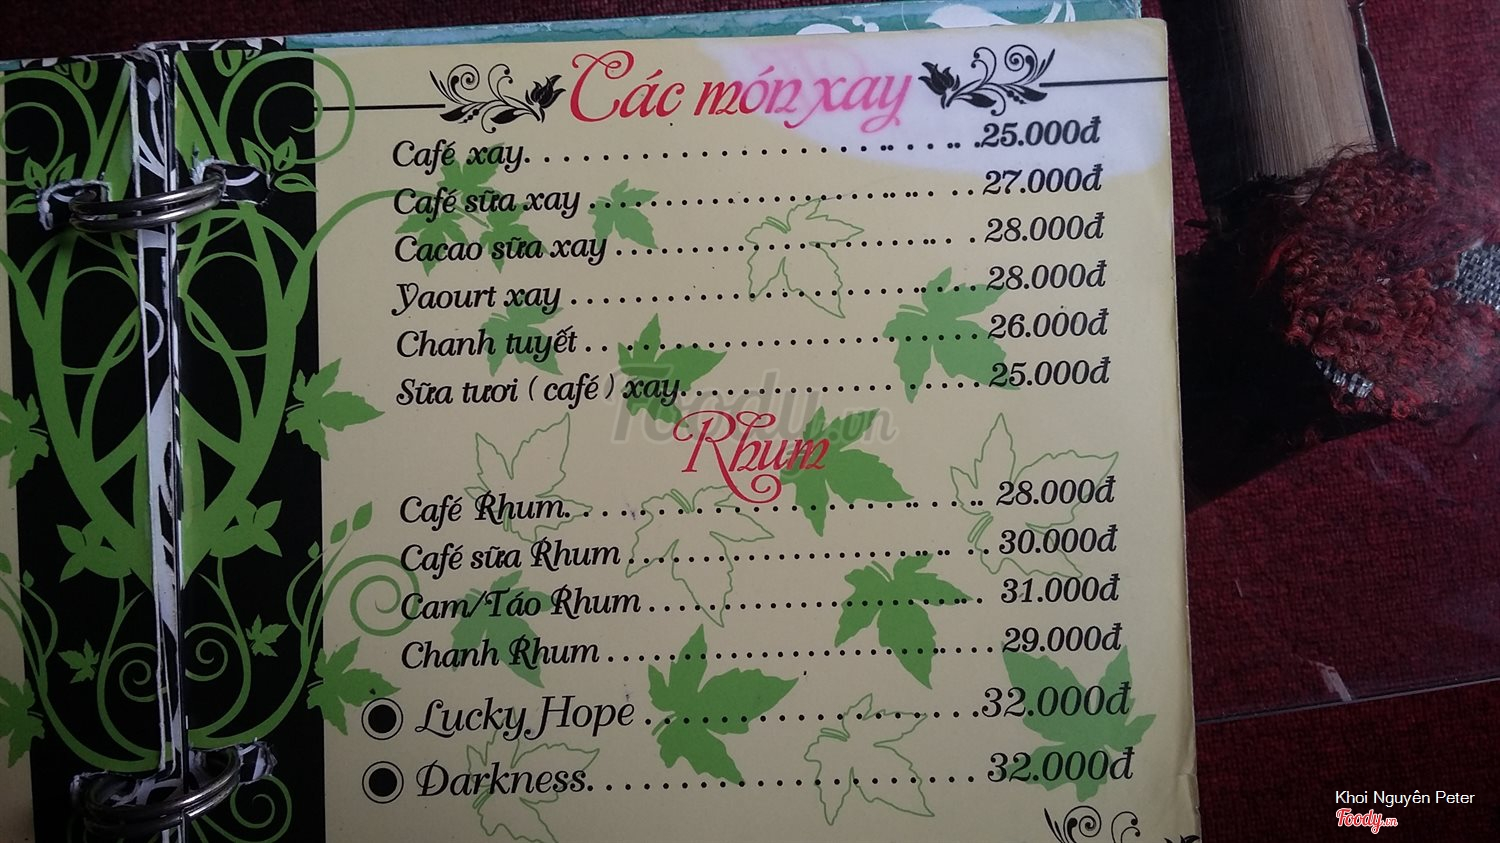 Các món xay
Café xay. . . . . . . . . . . . . . . . . . . . . . . . . .25.000đ
Café sữa xay . . . . . . . . . . . . . . . . . . . . . . . 27.000đ
Cacao sữa xay . . . . . . . . . . . . . . . . . . . . . . 28.000đ
Yaourt xay . . . . . . . . . . . . . . . . . . . . . . . . . 28.000đ
Chanh tuyết . . . . . . . . . . . . . . . . . . . . . . . . 26.000đ
Sữa tươi ( café ) xay. . . . . . . . . . . . . . . . . . . 25.000đ
Foody.vn
Rhum
Café Rhum. . . . . . . . . . . . . . . . . . . . . . . . 28.000đ
Café sữa Rhum . . . . . . . . . . . . . . . . . . . . . 30.000đ
Cam/Táo Rhum . . . . . . . . . . . . . . . . . . . . . 31.000đ
Chanh Rhum . . . . . . . . . . . . . . . . . . . . . . . 29.000đ
Lucky Hope . . . . . . . . . . . . . . . . . . .32.000đ
Darkness. . . . . . . . . . . . . . . . . . . . . . 32.000đ
Khoi Nguyên Peter
Foody.vn